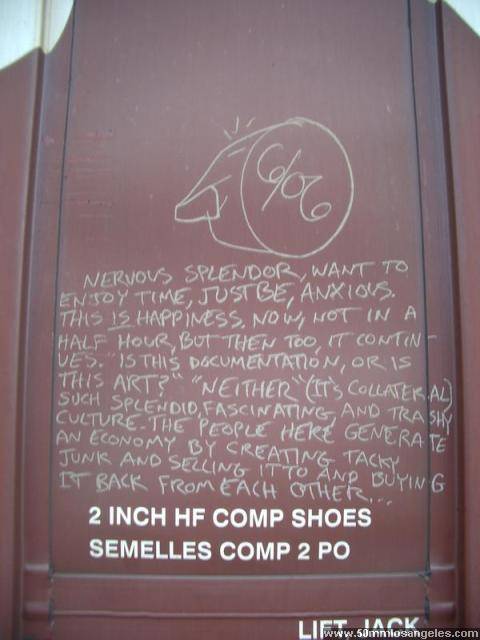 6/06
NERVOUS SPLENDOR, WANT TO
ENJOY TIME, JUST BE, ANXIOUS.
THIS IS HAPPINESS. NOW, NOT IN A
HALF HOUR, BUT THEN TOO, IT CONTIN-
UES. "IS THIS DOCUMENTATION, OR IS
THIS ART?" "NEITHER" (IT'S COLLATERAL)
SUCH SPLENDID, FASCINATING AND TRASHY
CULTURE. THE PEOPLE HERE GENERATE
AN ECONOMY BY CREATING TACKY
JUNK AND SELLING IT TO AND BUYING
IT BACK FROM EACH OTHER...
2 INCH HF COMP SHOES
SEMELLES COMP 2 PO
LIFT JACK
www.50mmlosangeles.com